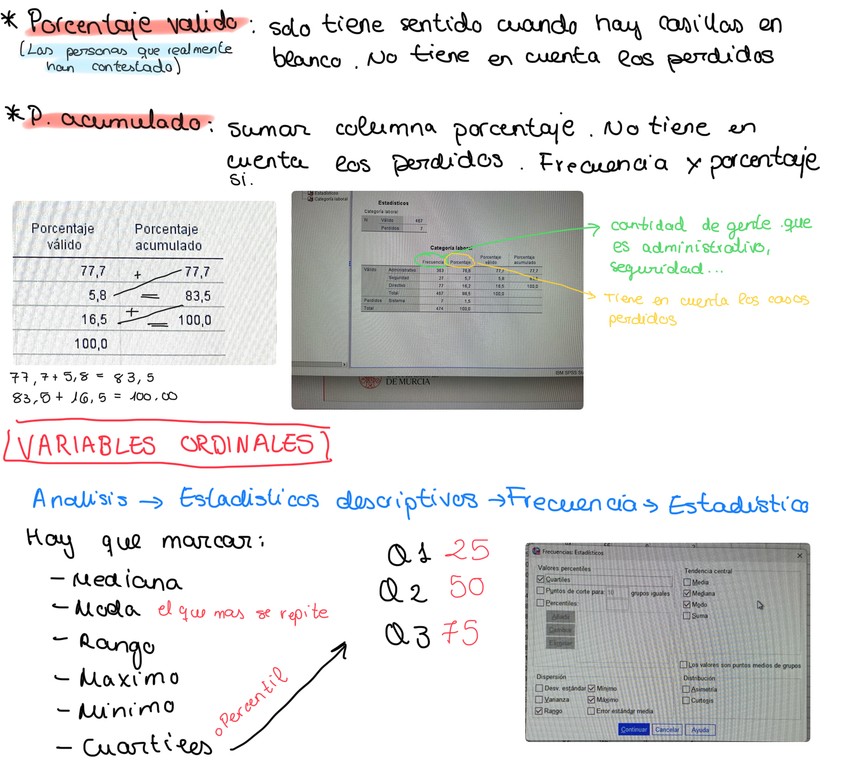 * Porcentaje valido: solo tiene sentido cuando hay casillas en
(Las personas que realmente
han contestado)
blanco. No tiene en cuenta los perdidos
* P. acumulado: sumar columna porcentaje. No tiene en
cuenta los perdidos. Frecuencia x porcentaje
si.
Porcentaje válido
Porcentaje acumulado
77,7 + 77,7
5,8 = 83,5
16,5 + = 100,0
100,0
77,7 + 5,8 = 83,5
83,5 + 16,5 = 100.00
Estadísticos
Categoría laboral
N Válido 467
Perdidos 7
Categoría laboral
Frecuencia Porcentaje Porcentaje válido Porcentaje acumulado
Válido Administrativo 363 76,6 77,7 77,7
Seguridad 27 5,7 5,8
Directivo 77 16,2 16,5 100,0
Total 467 98,5 100,0
Perdidos Sistema 7 1,5
Total 474 100,0
DE MURCIA
cantidad de gente que
es administrativo,
seguridad...
Tiene en cuenta los casos
perdidos
VARIABLES ORDINALES
Analisis → Estadisticos descriptivos → Frecuencia → Estadistico
Hay que marcar:
- Mediana
- Moda el que mas se repite
- Rango
- Maximo
- Minimo
- Cuartiles
o Percentil
Q1 25
Q2 50
Q3 75
Frecuencias: Estadísticos
Valores percentiles
Cuartiles
Puntos de corte para: 10 grupos iguales
Percentiles:
Tendencia central
Media
Mediana
Moda
Suma
Los valores son puntos medios de grupos
Dispersión
Desv. estándar Mínimo
Varianza Máximo
Rango Error estándar media
Distribución
Asimetría
Curtosis
Continuar Cancelar Ayuda